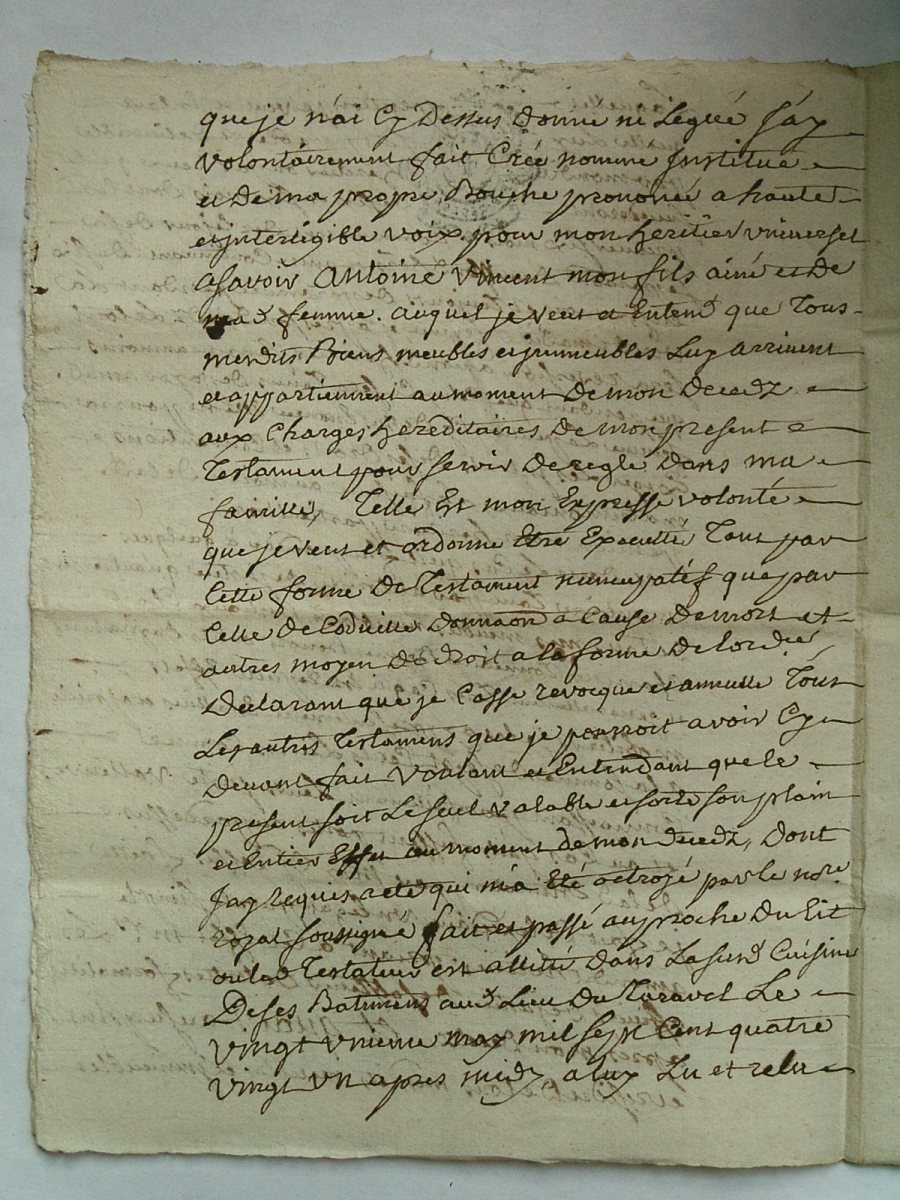 que je n'ai Cy Dessus donné ni Legué J'ay
volontairement fait Créé nommé Institué
et De ma propre Bouche prononcé a haute
et jntelligible voix pour mon heritier vniversel
asavoir Antoine Vincent mon fils ainé et de
mad. femme. auquel je veut et Entend que Tous
mesdits Biens meubles et jmmeubles Luy arrivent
et appartiennent au moment De mon Decedz
aux Charges hereditaires De mon present
Testament pour servir De regle Dans ma
famille, Telle Est mon Expresse volonté
que je veut et ordonne Etre Executté Tant par
Cette forme De Testament nuncupatif que par
Celle De Codicille Donnaon a Cause De mort et
autres moyen De Droit a la forme De lordce
Declarant que je Casse revocque et annulle Tous
Les autres Testamens que je pourroit avoir Cy
Devant fait Voulant et Entendant que le
present soit Le seul valable et sorte son plain
et Entier Effet au moment de mon Decedz, Dont
Jay requis acte qui m'a Eté octroyé par le nore
royal soussigné fait et passé au proche Du Lit
ou led Testateur est allitté dans La susd Cuisine
De ses Batimens aud. Lieu Du Taravel Le
vingt vnieme may mil sept Cent quatre
vingt vn apres midy, a luy Lu et relu